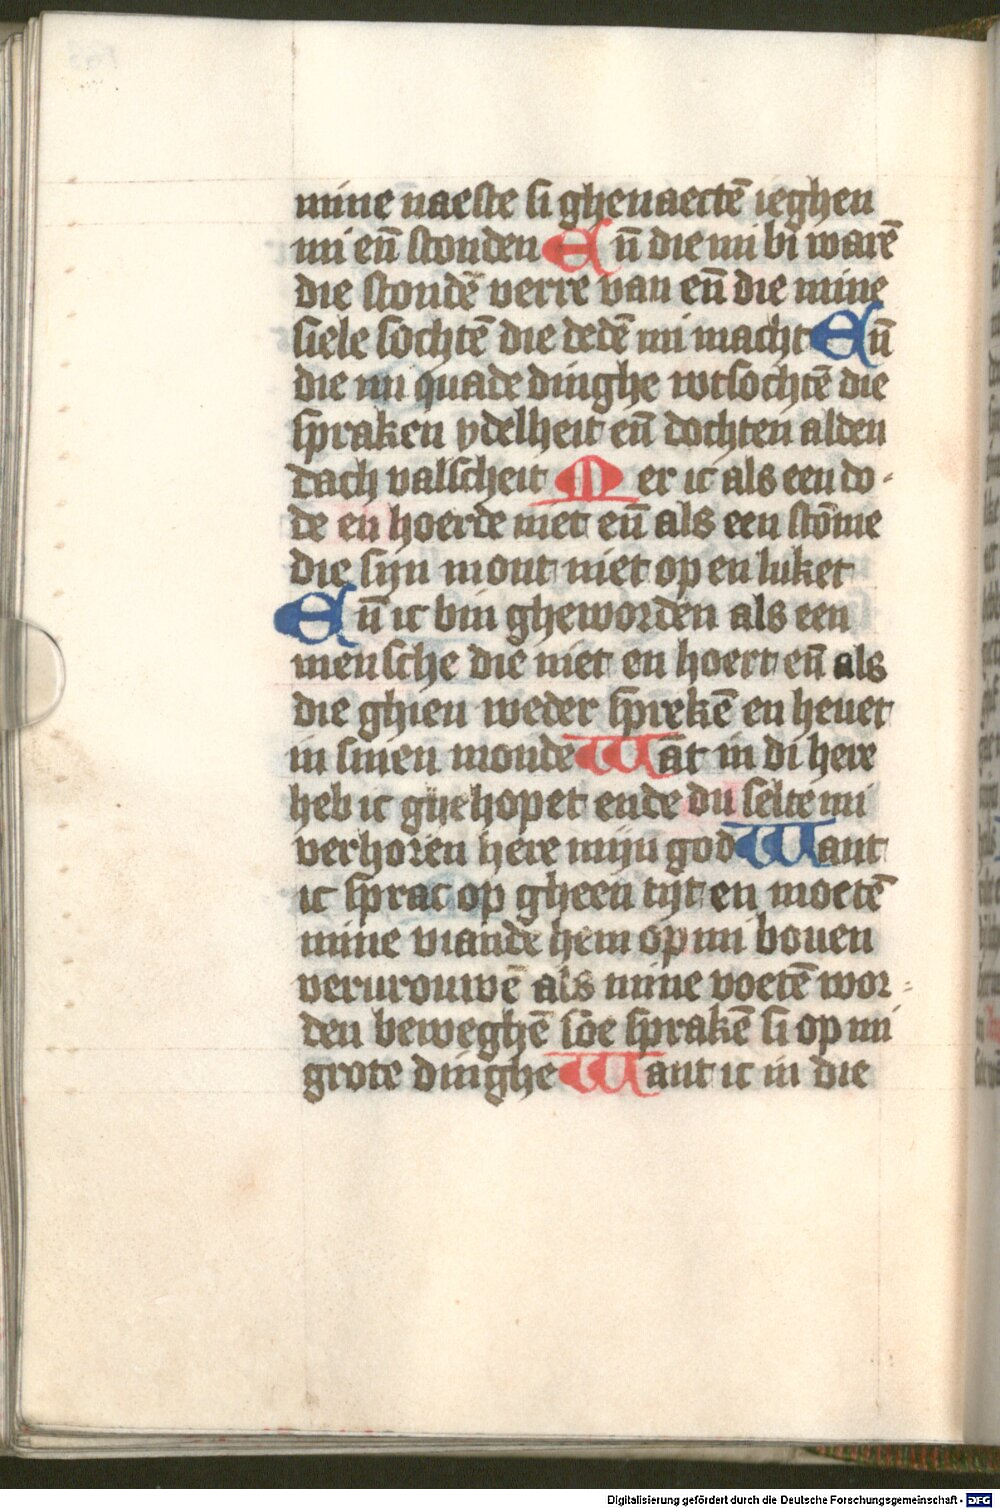 mine naeste si ghenaectē ieghen
mi en̄ stonden En̄ die mi bi warē
die stondē verre van en̄ die mine
siele sochtē die dedē mi macht En̄
die mi quade dinghe wtsochtē die
spraken ydelheit en̄ dochten alden
dach valscheit Mer ic als een do-
de en hoerde niet en̄ als een stōme
die sijn mont niet op en luket
En̄ ic bin gheworden als een
mensche die niet en hoert en̄ als
die ghien weder sprekē en heuet
in sinen monde Want in di here
heb ic ghehopet ende du selte mi
verhoren here mijn god Want
ic sprac op gheen tijt en moetē
mine viandē hem op mi bouen
vervrouwē als mine voetē wor-
den beweghē sōe sprakē si op mi
grote dinghe Want ic in die
Digitalisierung gefördert durch die Deutsche Forschungsgemeinschaft - DFG